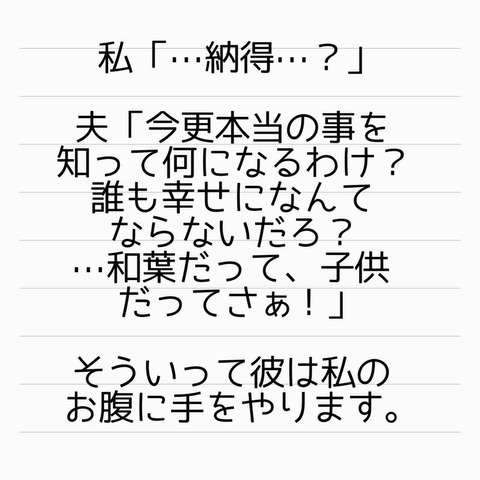 私「…納得…？」
夫「今更本当の事を
知って何になるわけ？
誰も幸せになんて
ならないだろ？
…和葉だって、子供
だってさぁ！」
そういって彼は私の
お腹に手をやります。